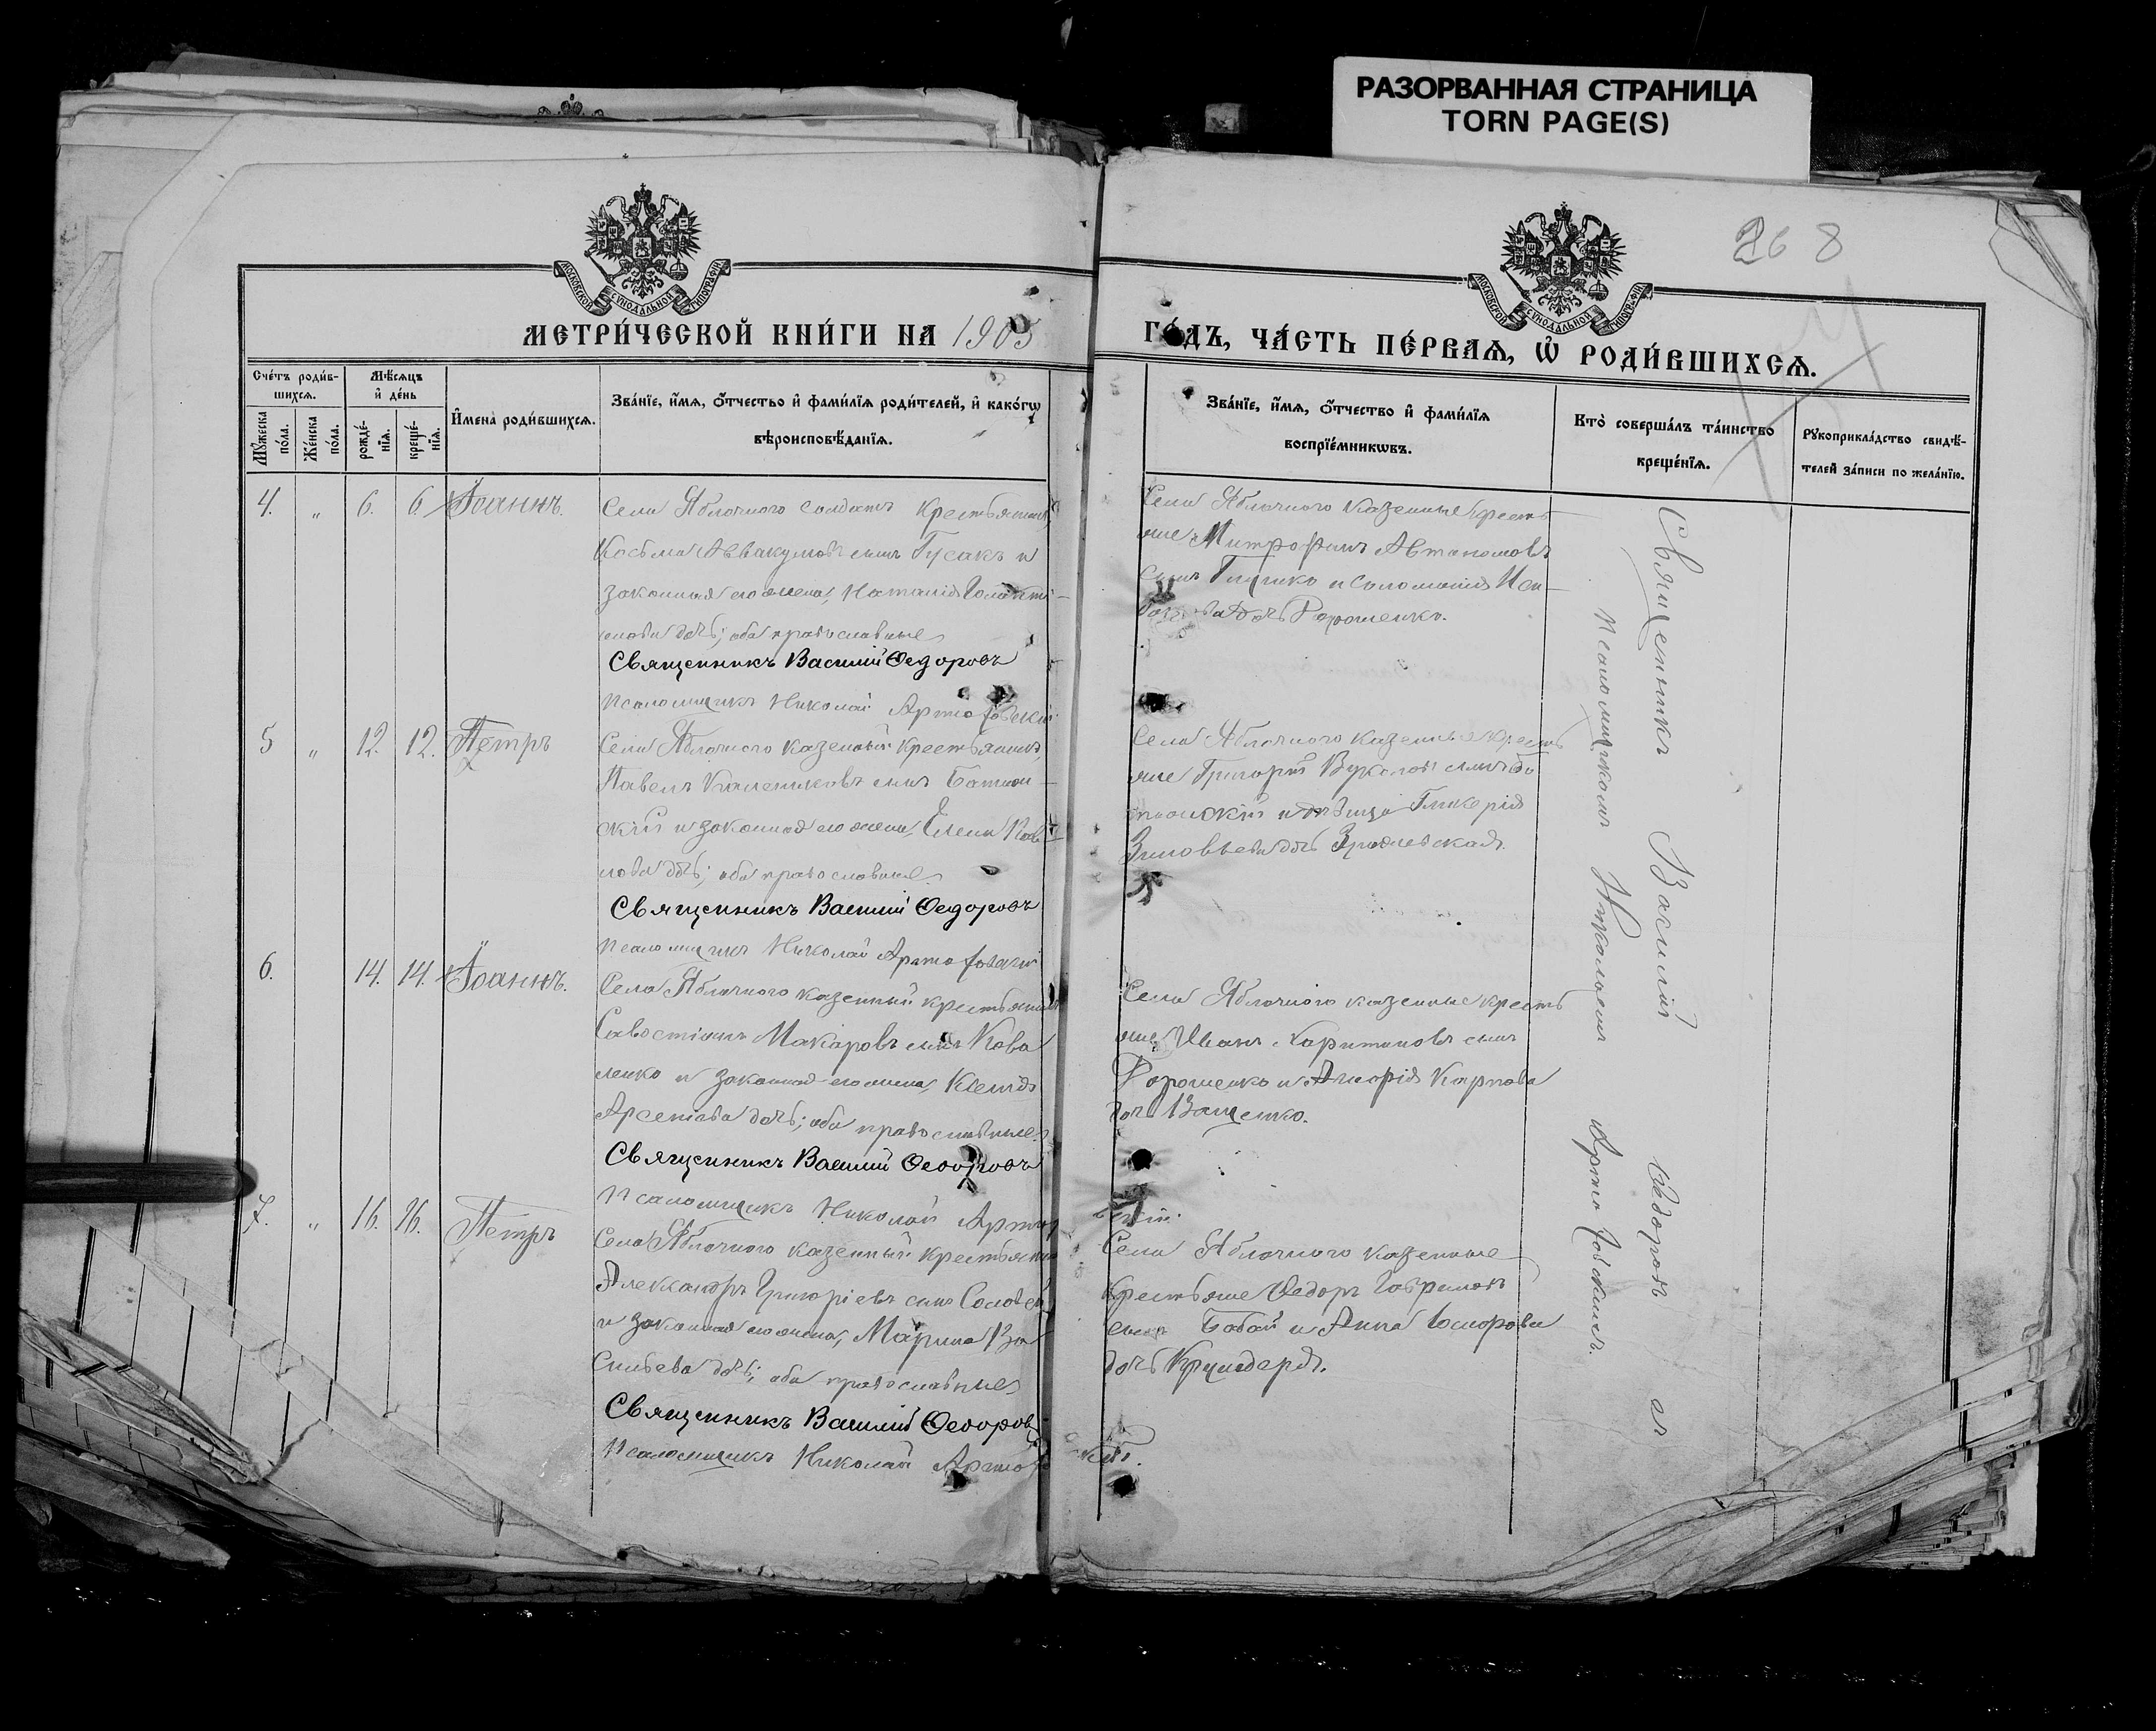 РАЗОРВАННАЯ СТРАНИЦА
TORN PAGE(S)
268
МОСКОВСКОЙ СѴНОДАЛЬНОЙ ТИПОГРАФІИ
МОСКОВСКОЙ СѴНОДАЛЬНОЙ ТИПОГРАФІИ
МЕТРИ́ЧЕСКОЙ КНИ́ГИ НА 1905
ГО́ДЪ, ЧА́СТЬ ПЕ́РВАѦ, Ѡ҆ РОДИ́ВШИХСѦ.
Сче́тъ роди́в-
шихсѧ.
Мꙋ́жеска по́ла.
Же́нска по́ла.
Мѣ́сѧцъ
и҆ де́нь
рожде́-
нїѧ.
креще́-
нїѧ.
И҆мена̀ роди́вшихсѧ.
Зва́нїе, и҆́мѧ, ѻ҆́тчество и҆ фами́лїѧ роди́телей, и҆ како́гѡ
вѣроисповѣ́данїѧ.
Зва́нїе, и҆́мѧ, ѻ҆́тчество и҆ фами́лїѧ
воспрїе́мникѡвъ.
Кто̀ соверша́лъ та́инство
креще́нїѧ.
Рꙋкоприкла́дство свидѣ́-
телей за́писи по жела́нїю.
4. „ 6. 6. Іоаннъ.
Села Яблочного солдатъ крестьянинъ
Косьма Аввакумовъ сынъ Гусакъ и
законная его жена, Наталія
дочь; оба православные
Священникъ Василій Ѳедоровъ
Псаломщикъ Николай Артюховскій
Села Яблочного казенные кресть
яне Митрофанъ Автаномовъ
сынъ и Соломонія
дочь Дорошенко.
5 „ 12. 12. Петръ
Села Яблочного казенный крестьянинъ
Павелъ Калениковъ сынъ
скій и законная его жена, Елена
лова дочь; оба православные
Священникъ Василій Ѳедоровъ
Псаломщикъ Николай Артюховскій
Села Яблочного казенные кресть
яне Григорій Вуколовъ сынъ
и Гликерія
Зиновьева дочь
6. 14. 14. Іоаннъ.
Села Яблочного казенный крестьянинъ
Савостіанъ Макаровъ сынъ Кова
ленко и законная его жена, Ксенія
Арсеніева дочь; оба православные
Священникъ Василій Ѳедоровъ
Псаломщикъ Николай Артюхов
скій.
Села Яблочного казенные кресть
яне Иванъ Харитоновъ сынъ
Дорошенко и Карпова
дочь Ващенко.
7. „ 16. 16. Петръ
Села Яблочного казенный крестьянинъ
Александръ Григоріевъ сынъ Соловей
и законная его жена, Марина Ва
сильева дочь; оба православные
Священникъ Василій Ѳедоровъ
Псаломщикъ Николай Артюхов
скій.
Села Яблочного казенные
крестьяне Ѳедоръ Гавриловъ
сынъ Бабай и Анна
дочь
Священникъ Василій Ѳедоровъ съ
Псаломщикомъ Николаемъ Артюховскимъ.